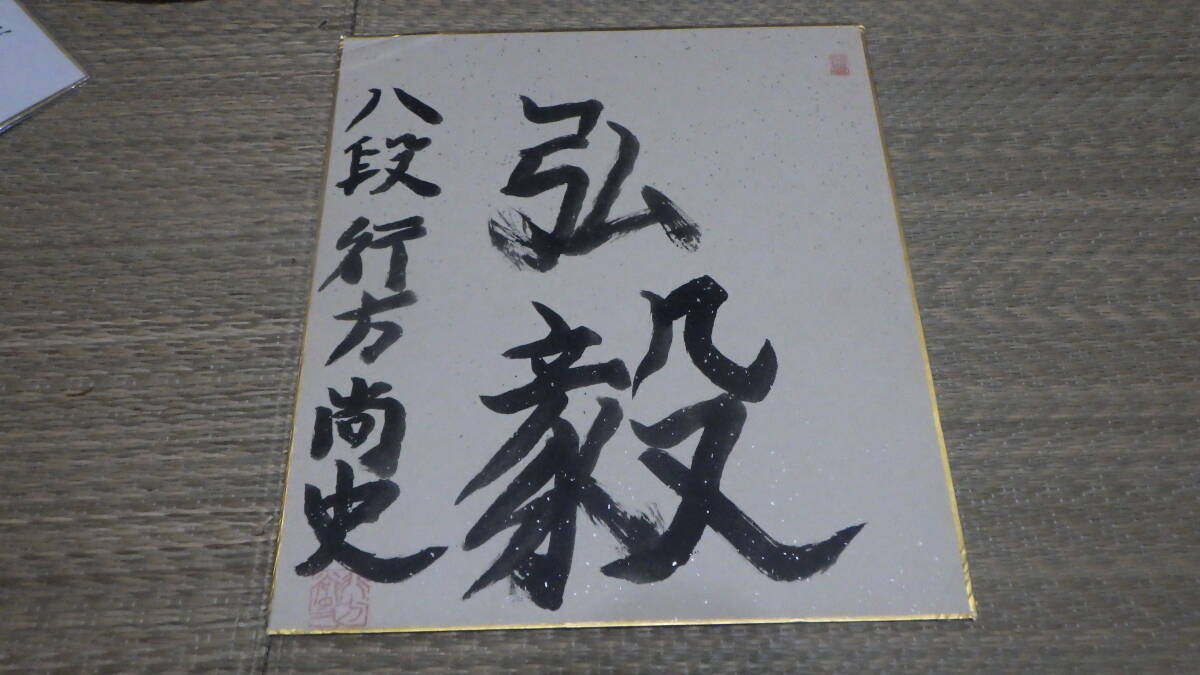 弘毅
八段 行方尚史